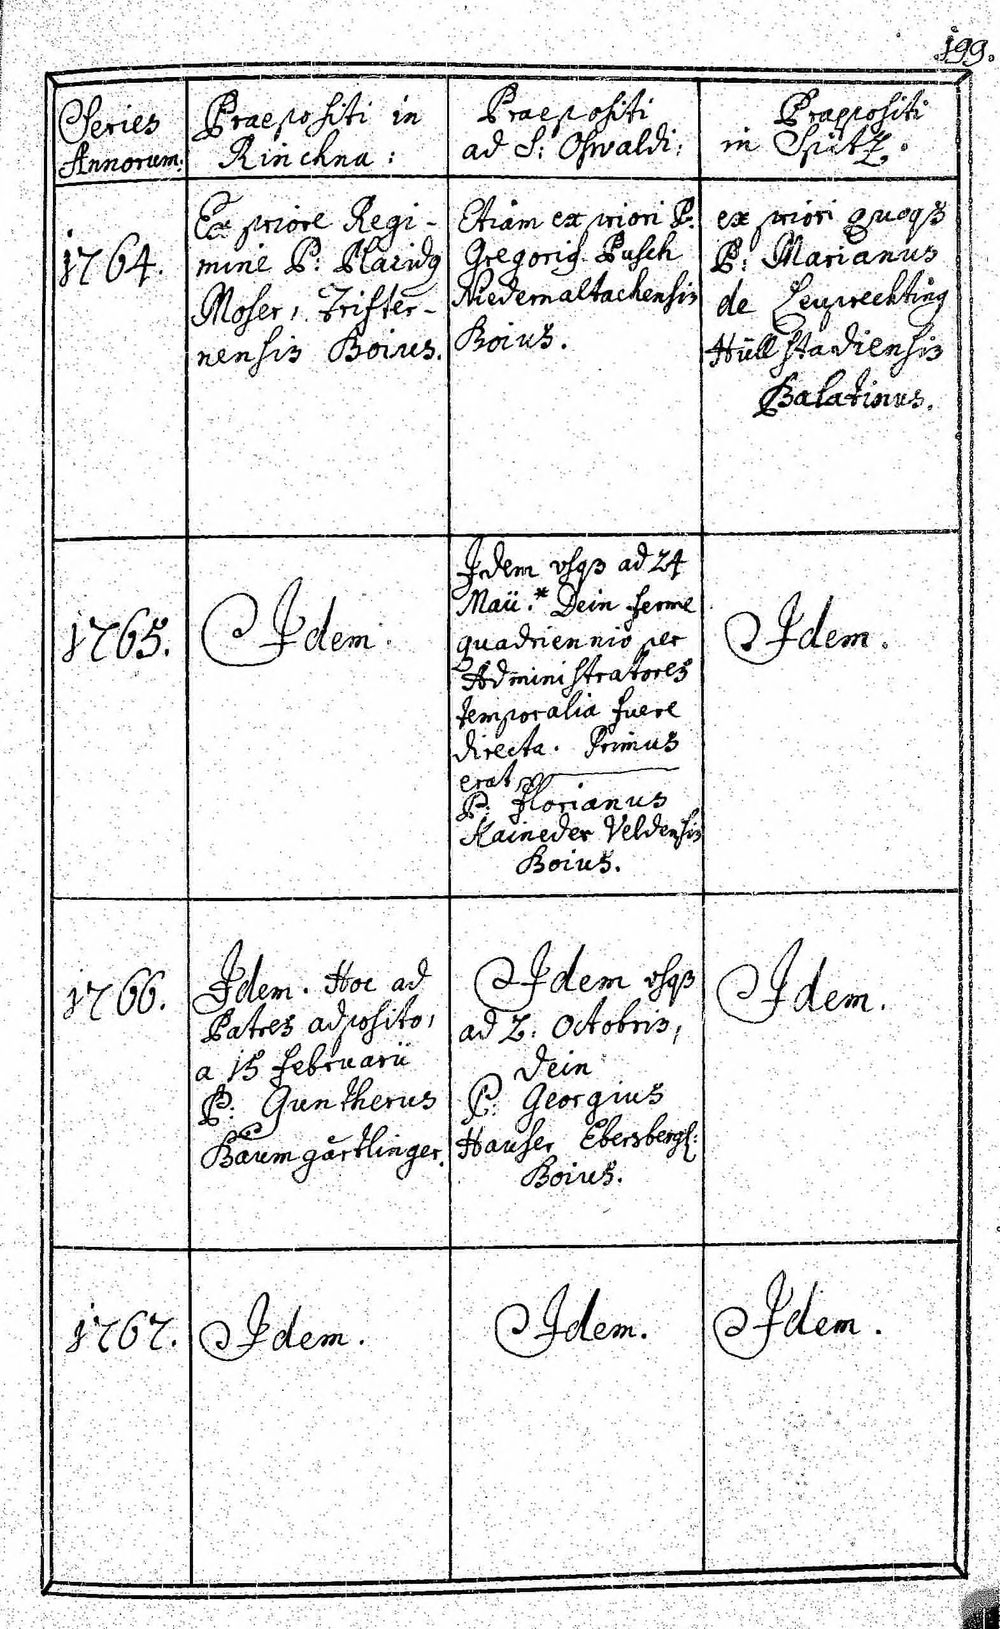 199.
Series
Annorum.
Praepositi in
Rinchna:
Praepositi
ad S: Oswaldi:
Praepositi
in Spitz.
1764.
Ex priore Regi-
mine P: Placidg
Moser, Trifter-
nensis Boius.
Etiam ex priori P.
Gregorig Pusch
Niedernaltachensis
Boius.
ex priori quoqȝ
P: Marianus
de Leuprechting
Hüllstadiensis
Palatinus.
1765.
Idem.
Idem vsqȝ ad 24
Maii.* Dein ferme
quadriennio per
Administratores
temporalia fuere
directa. Primus
erat
P: Florianus
Kaineder Veldensis
Boius.
Idem.
1766.
Idem. Hoc ad
Patres adposito,
a 15 Februarii
P: Guntherus
Baumgärtlinger.
Idem vsqȝ
ad 2. Octobris,
Dein
P: Georgius
Hauser Ebersbergs:
Boius.
Idem.
1767.
Idem.
Idem.
Idem.